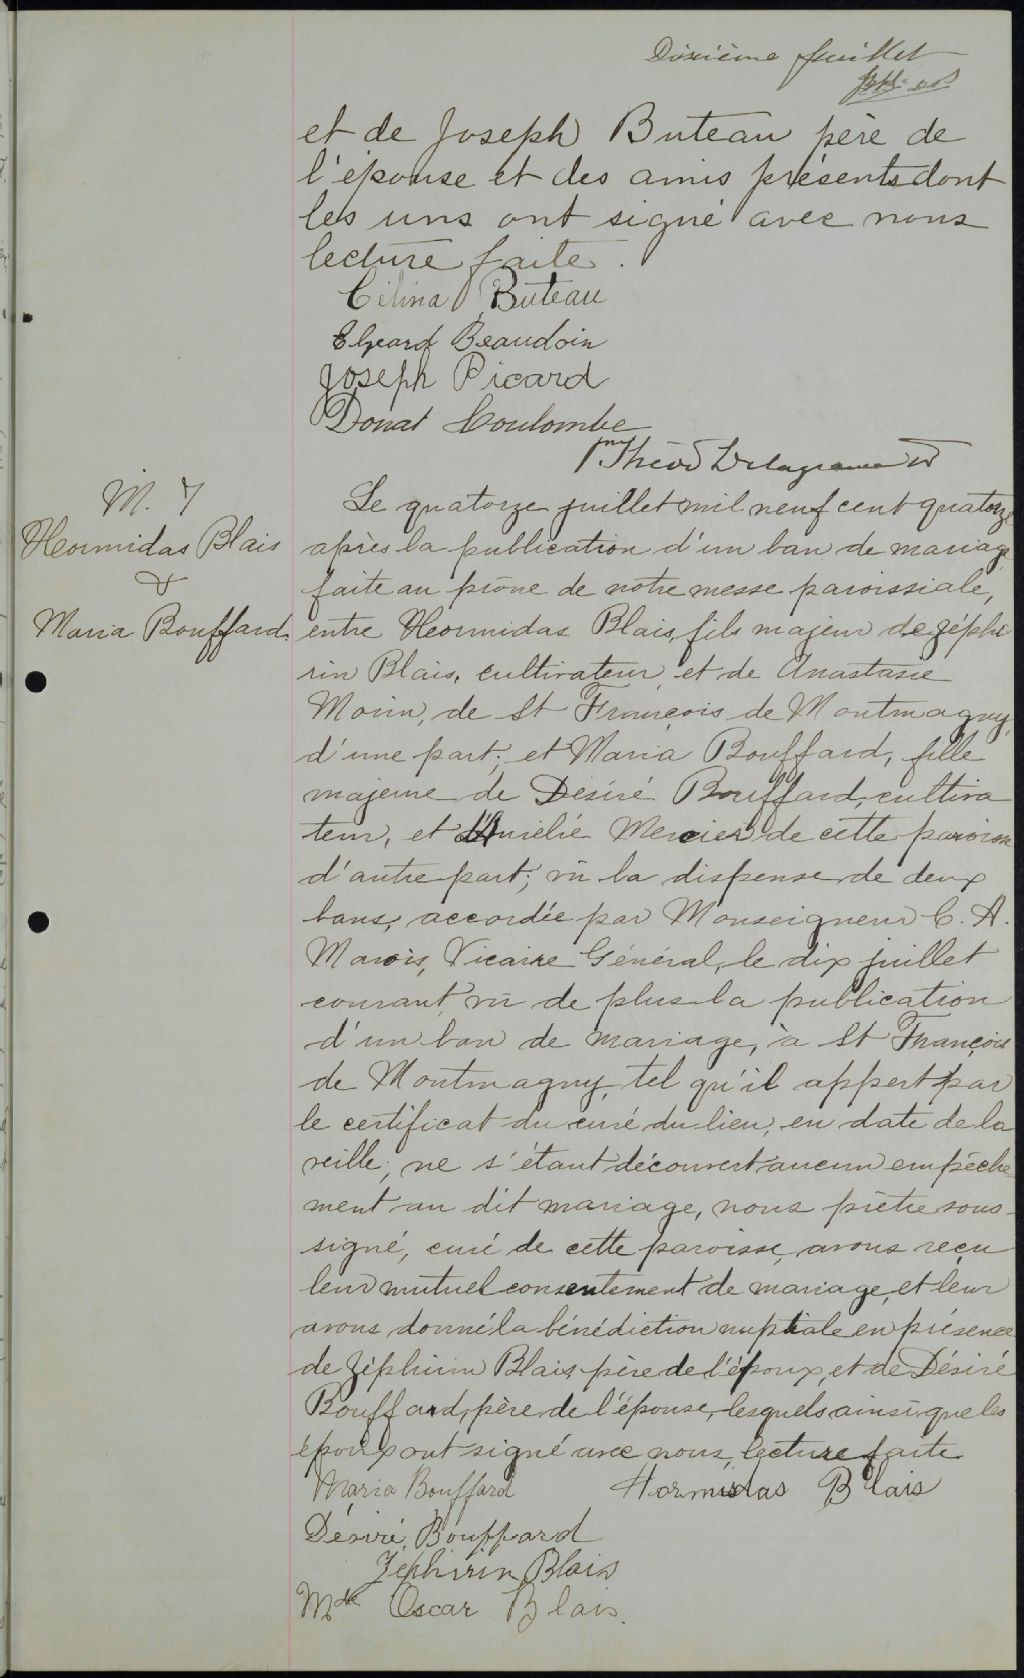 Dixième feuillet
et de Joseph Buteau père de
l'épouse et des amis présents dont
les uns ont signé avec nous
lecture faite.
Célina Buteau
Elzéard Beaudoin
Joseph Picard
Donat Coulombe
M. 7
Hormidas Blais
&
Maria Bouffard.
Le quatorze juillet mil neuf cent quatorze
après la publication d'un ban de mariage
faite au prône de notre messe paroissiale,
entre Hormidas Blais, fils majeur de zéphi
rin Blais, cultivateur, et de Anastasie
Morin, de St François de Montmagny,
d'une part; et Maria Bouffard, fille
majeure de Désiré Bouffard, cultiva
teur, et Mercier de cette paroisse
d'autre part; vû la dispense de deux
bans, accordée par Monseigneur C. A.
Marois, Vicaire Général, le dix juillet
courant, vû de plus la publication
d'un ban de mariage, à St François
de Montmagny, tel qu'il appert par
le certificat du curé du lieu, en date de la
veille; ne s'étant découvert aucun empêche
ment au dit mariage, nous prêtre sous-
signé, curé de cette paroisse, avons reçu
leur mutuel consentement de mariage, et leur
avons donné la bénédiction nuptiale en présence
de Zéphirin Blais, père de l'époux, et de Désiré
Bouffard, père de l'épouse, lesquels ainsi que les
époux ont signé avec nous, lecture faite
Maria Bouffard Hormisdas Blais
Désiré Bouffard
Zéphirin Blais
Mde Oscar Blais.